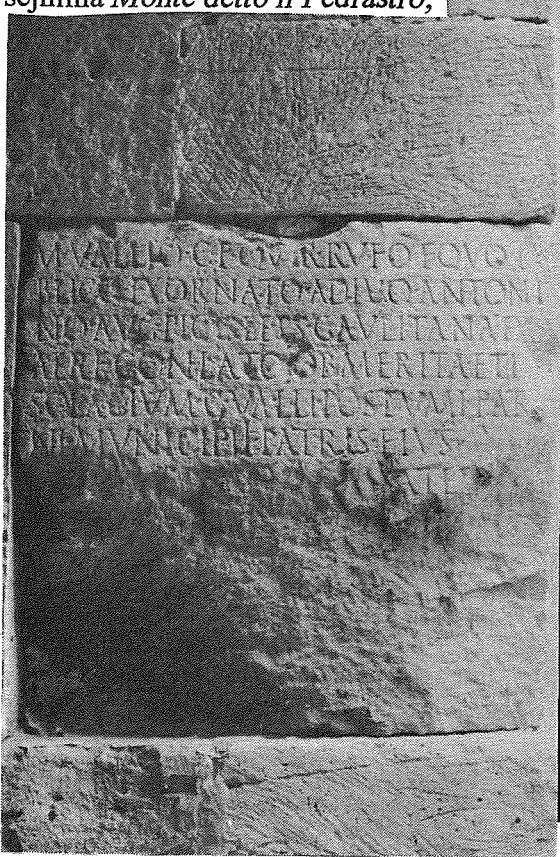 Monte detto il Pedrastro,
M·VALLIO·C·F·QVIR·RVFO·EQVO
BLICO·EXORNATO·A DIVO·ANTONI
NO·AVG·PIO·PLEBS·GAVLITANA
AERE CONLATO·OB MERITA ET I
SOLACIVM·C·VALLI POSTVMI·PAT
NI·MVNICIPII·PATRIS·EIVS